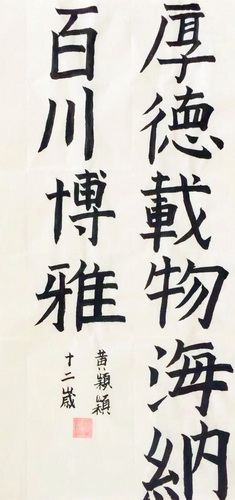 厚德載物海納
百川博雅
黃穎穎
十二歲